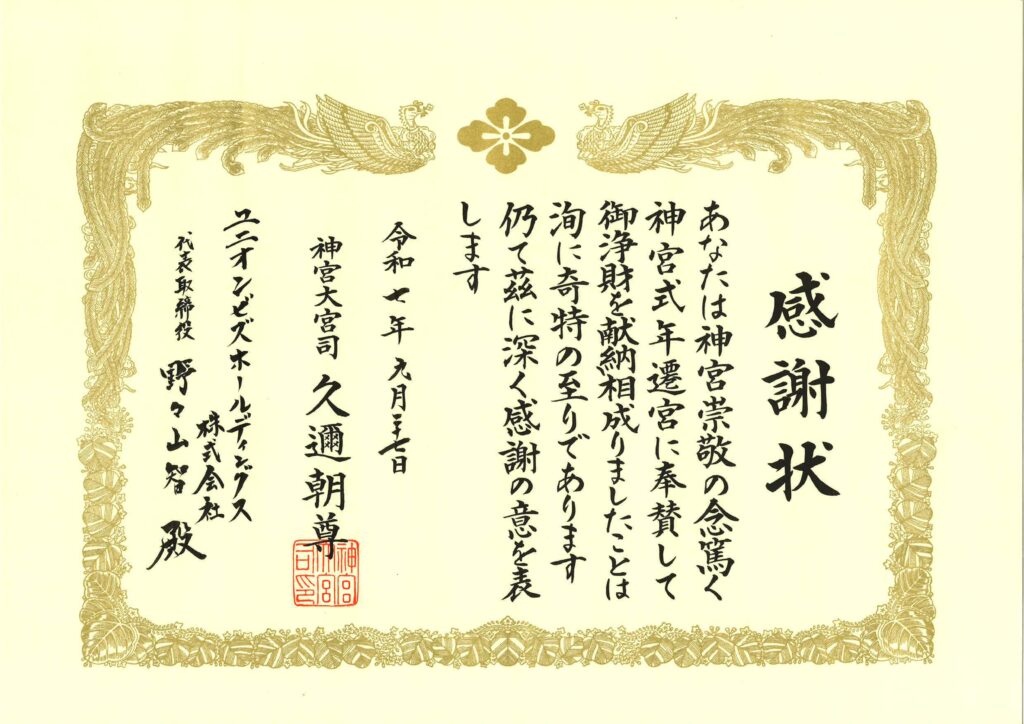 感謝状
あなたは神宮崇敬の念篤く
神宮式年遷宮に奉賛して
御浄財を献納相成りましたことは
洵に奇特の至りであります
仍て茲に深く感謝の意を表
します
令和七年九月二十七日
神宮大宮司 久邇朝尊
神宮大宮司印
ユニオンビズホールディングス
株式会社
代表取締役 野々山智 殿